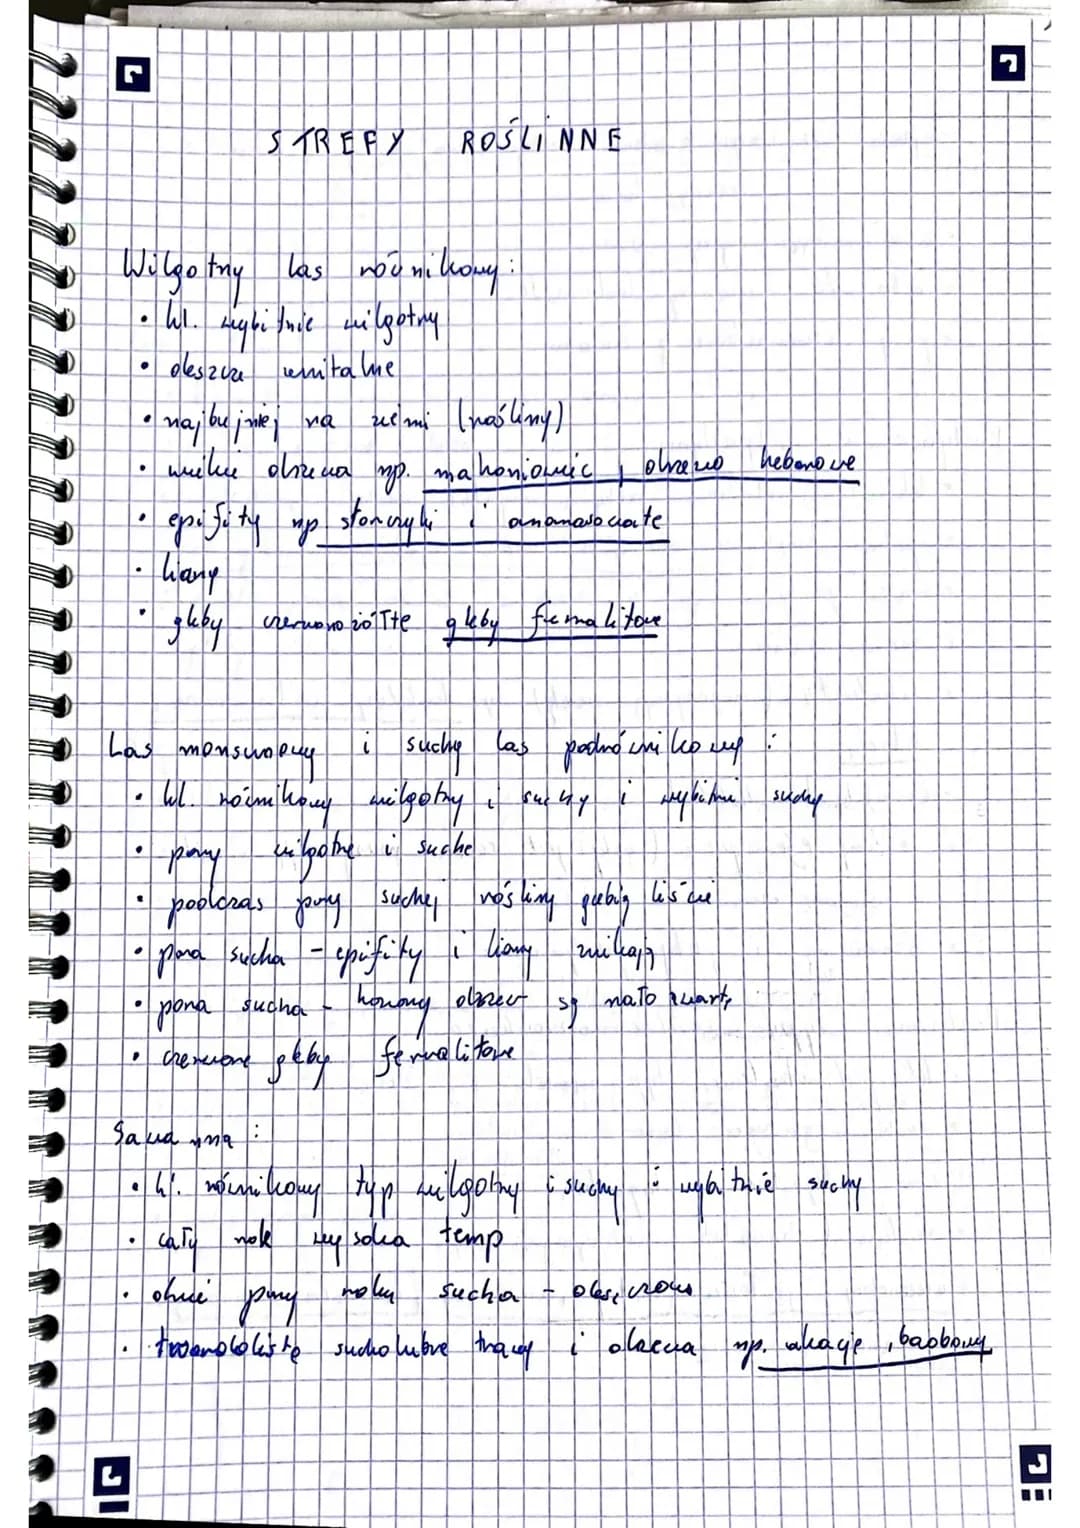 STREFY ROŚLINNE
Wilgotny las równikowy:
• kl. wybitnie wilgotny
• deszcze zenitalne
• najbujniej na ziemi (rośliny)
• wielkie drzewa np. mahoniowiec, drzewo hebanowe
• epifity np. storczyki i ananasowate
• liany
• gleby czerwonożółte gleby ferralitowe
Las monsunowy i suchy las podrównikowy:
• kl. równikowy wilgotny i suchy i wybitnie suchy
• pory wilgotne i suche
• podczas pory suchej rośliny gubią liście
• pora sucha - epifity i liany znikają
• pora sucha - korony drzew są mało zwarte
• czerwone gleby ferralitowe
Sawanna:
• kl. równikowy typ wilgotny i suchy i wybitnie suchy
• cały rok wysoka temp
• dwie pory roku sucha - deszczowa
• twardolistne sucholubne trawy i drzewa np. akacje, baobaby